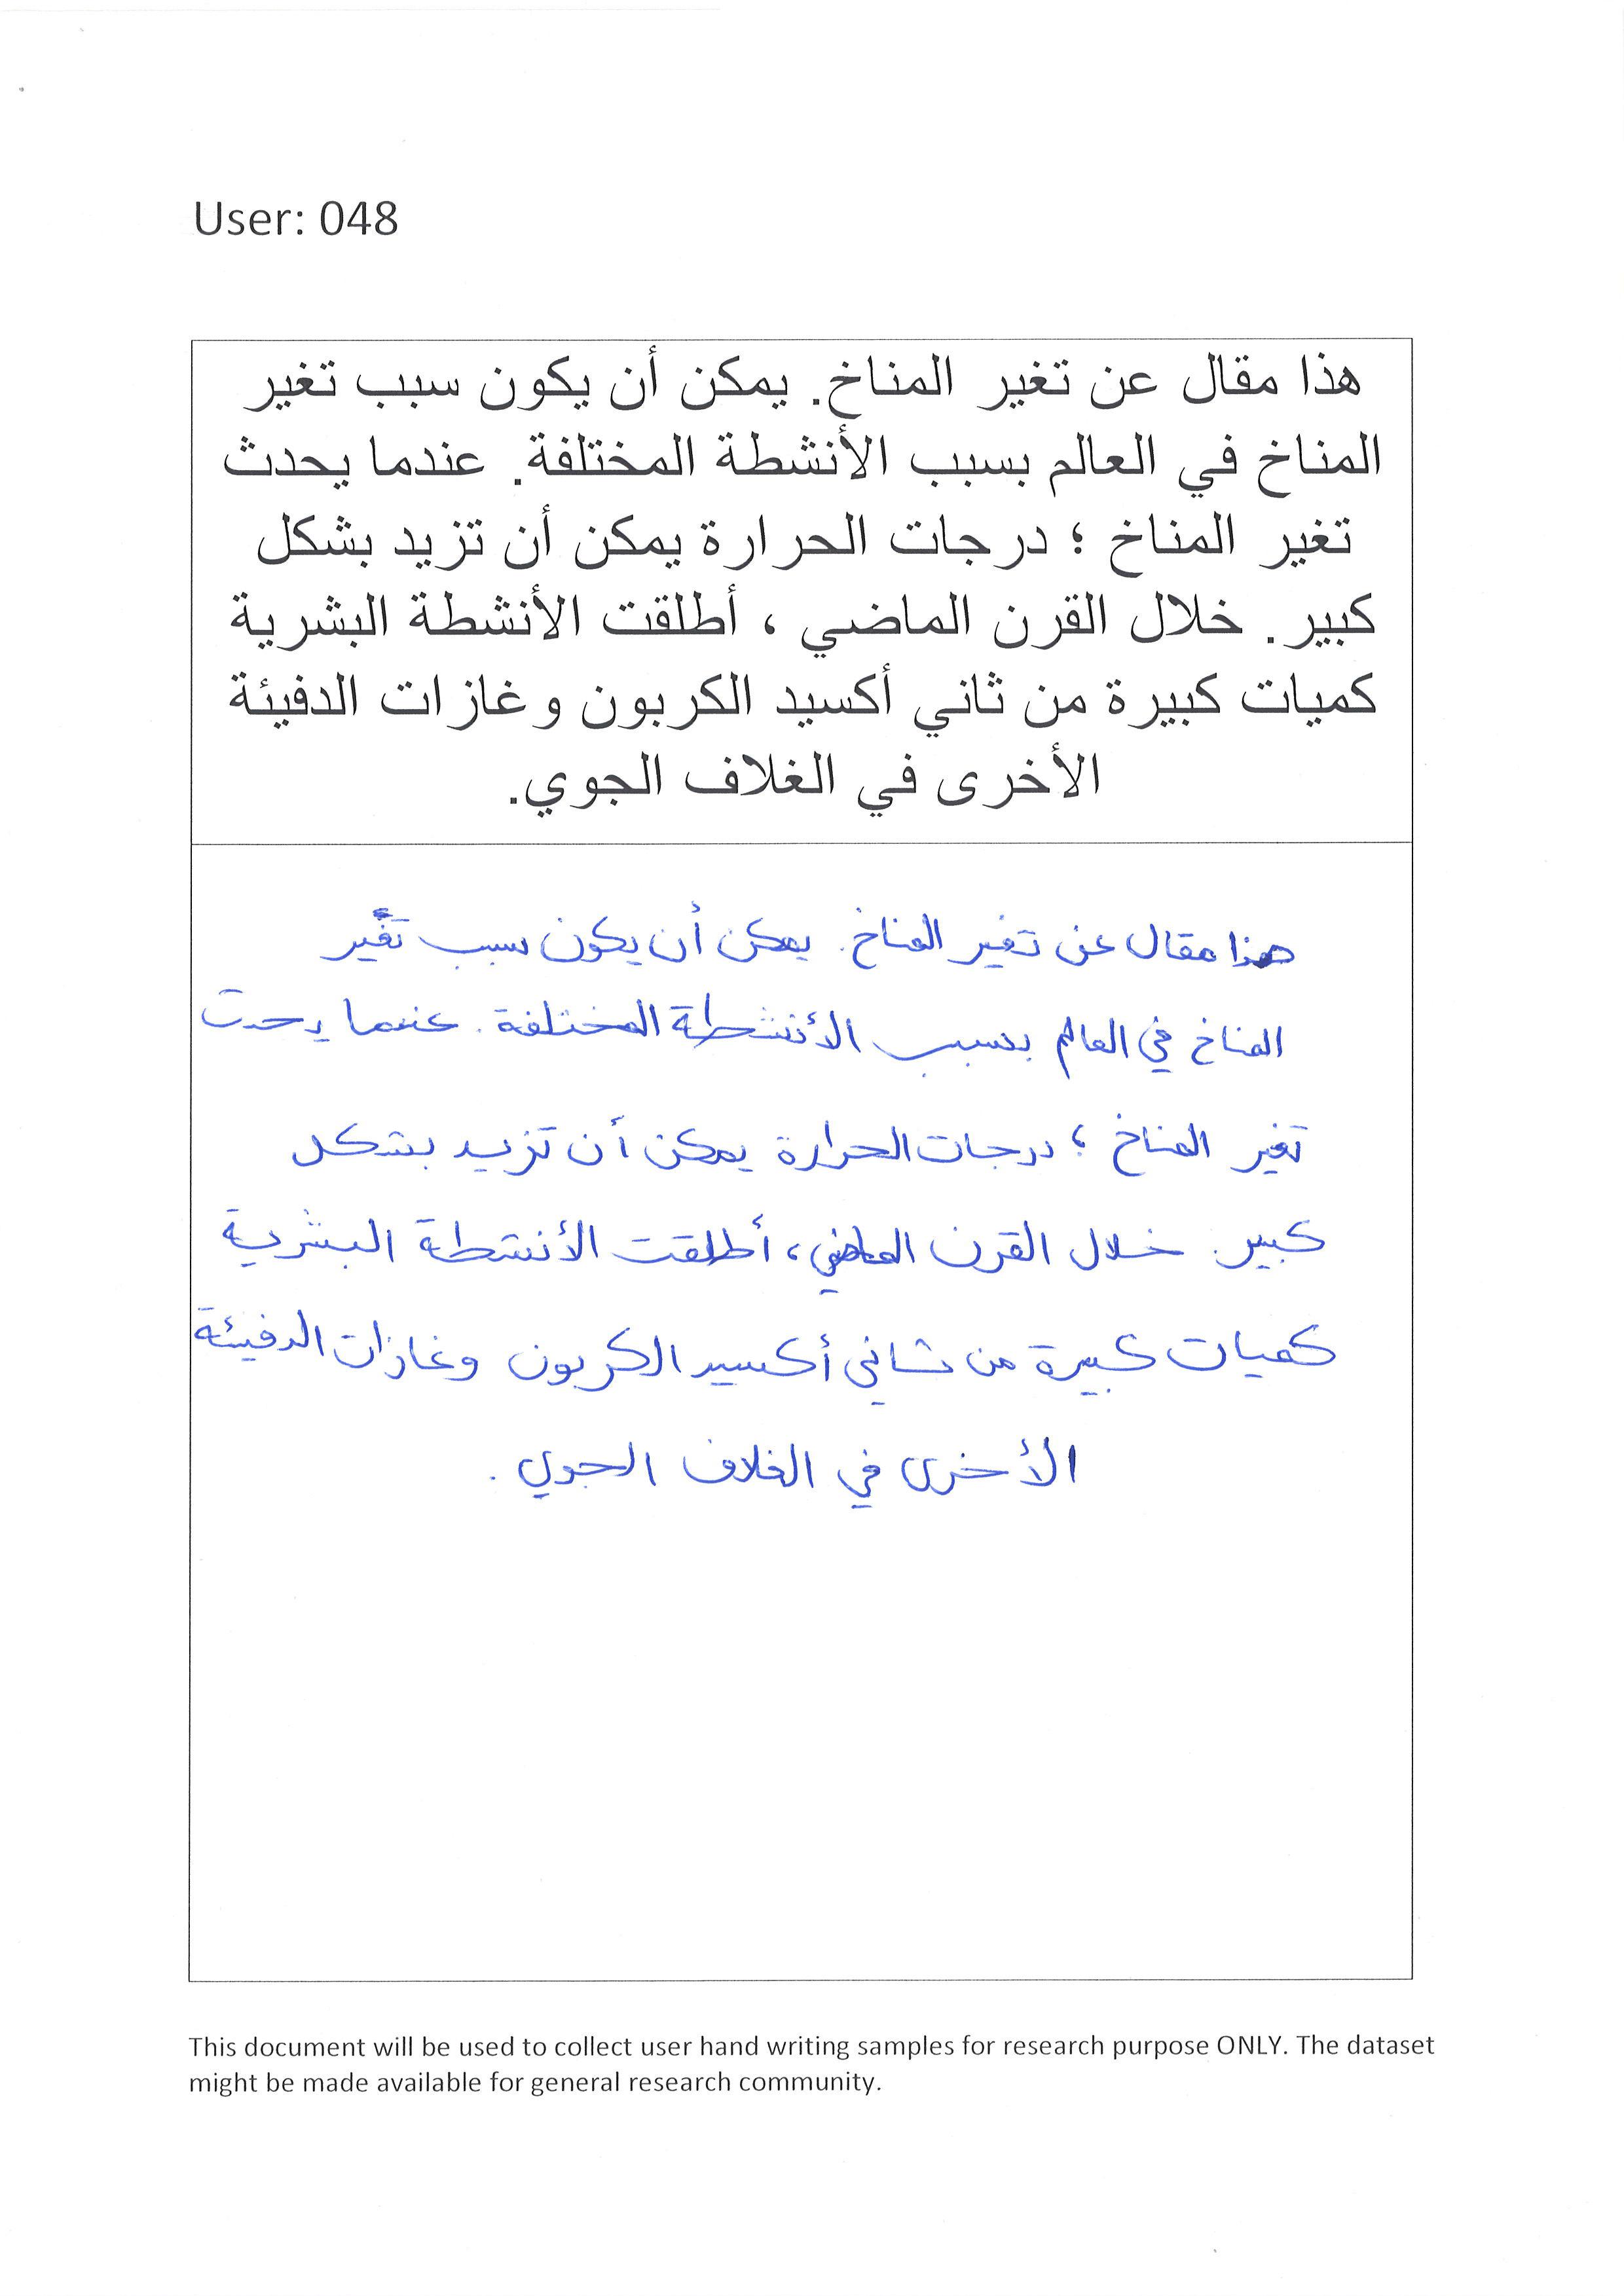 User: 048
هذا مقال عن تغير المناخ. يمكن أن يكون سبب تغير
المناخ في العالم بسبب الأنشطة المختلفة. عندما يحدث
تغير المناخ ؛ درجات الحرارة يمكن أن تزيد بشكل
كبير. خلال القرن الماضي ، أطلقت الأنشطة البشرية
كميات كبيرة من ثاني أكسيد الكربون وغازات الدفيئة
الأخرى في الغلاف الجوي.
هذا مقال عن تغير المناخ. يمكن أن يكون سبب تغير
المناخ في العالم بسبب الأنشطة المختلفة. عندما يحدث
تغير المناخ ؛ درجات الحرارة يمكن أن تزيد بشكل
كبير. خلال القرن الماضي ، أطلقت الأنشطة البشرية
كميات كبيرة من ثاني أكسيد الكربون وغازات الدفيئة
الأخرى في الغلاف الجوي .
This document will be used to collect user hand writing samples for research purpose ONLY. The dataset
might be made available for general research community.